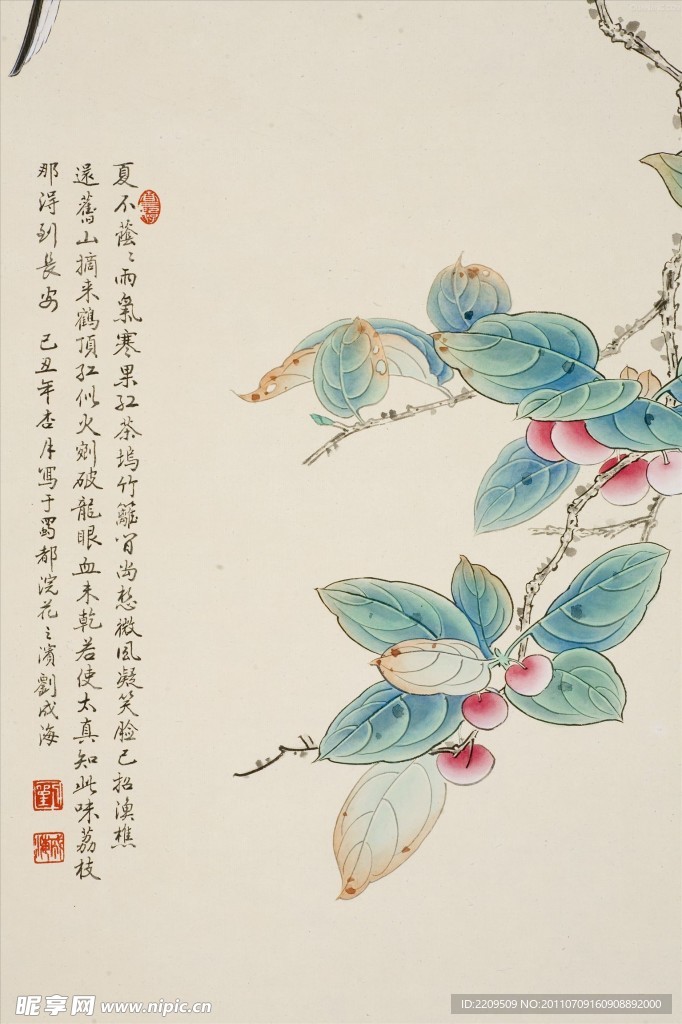 夏木蔭蔭雨氣寒果紅茶塢竹籬間尚愁微風凝笑臉已招漁樵
還舊山摘来鶴頂紅似火剜破龍眼血未乾若使太真知此味荔枝
那得到長安 己丑年杏月寫于蜀都浣花之濱劉成海
昵享网 www.nipic.cn
ID:2209509 NO:20110709160908892000